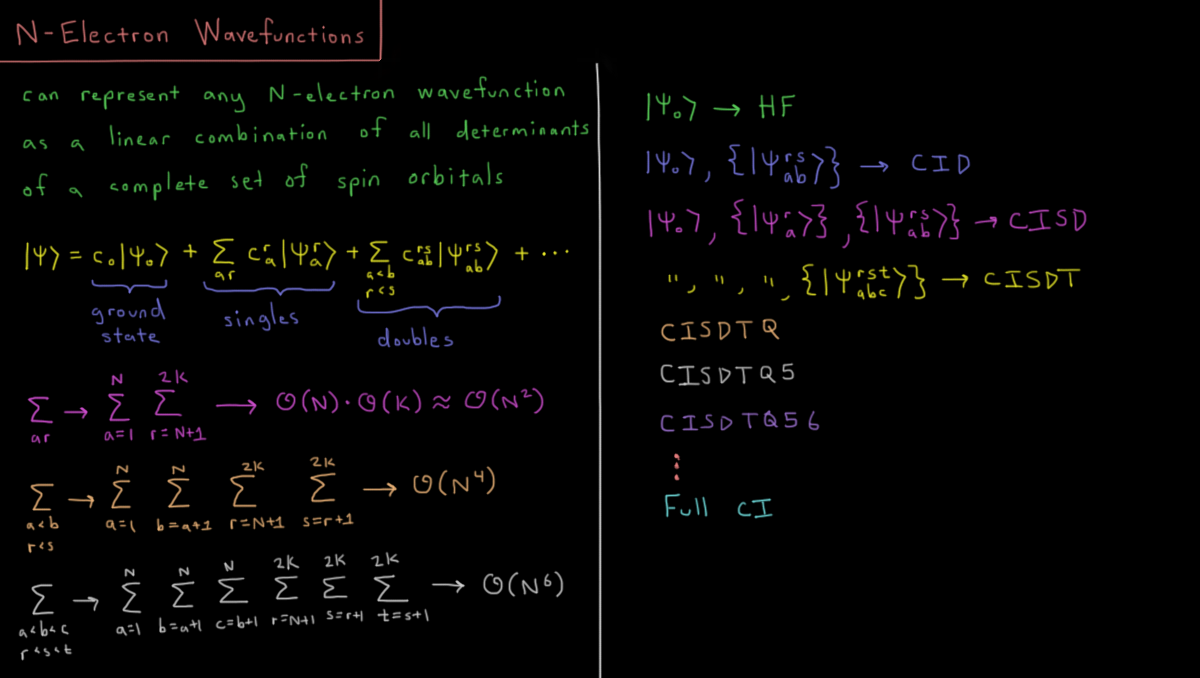 N-Electron Wavefunctions
can represent any N-electron wavefunction
as a linear combination of all determinants
of a complete set of spin orbitals
|Ψ⟩ = c₀|Ψ₀⟩ + Σ_{ar} c_a^r|Ψ_a^r⟩ + Σ_{a<b r<s} c_{ab}^{rs}|Ψ_{ab}^{rs}⟩ + ⋯
ground state
singles
doubles
Σ_{ar} → Σ_{a=1}^{N} Σ_{r=N+1}^{2K} → O(N)·O(K) ≈ O(N²)
Σ_{a<b r<s} → Σ_{a=1}^{N} Σ_{b=a+1}^{N} Σ_{r=N+1}^{2K} Σ_{s=r+1}^{2K} → O(N⁴)
Σ_{a<b<c r<s<t} → Σ_{a=1}^{N} Σ_{b=a+1}^{N} Σ_{c=b+1}^{N} Σ_{r=N+1}^{2K} Σ_{s=r+1}^{2K} Σ_{t=s+1}^{2K} → O(N⁶)
|Ψ₀⟩ → HF
|Ψ₀⟩, {|Ψ_{ab}^{rs}⟩} → CID
|Ψ₀⟩, {|Ψ_a^r⟩}, {|Ψ_{ab}^{rs}⟩} → CISD
", ", ", {|Ψ_{abc}^{rst}⟩} → CISDT
CISDTQ
CISDTQ5
CISDTQ56
⋮
Full CI